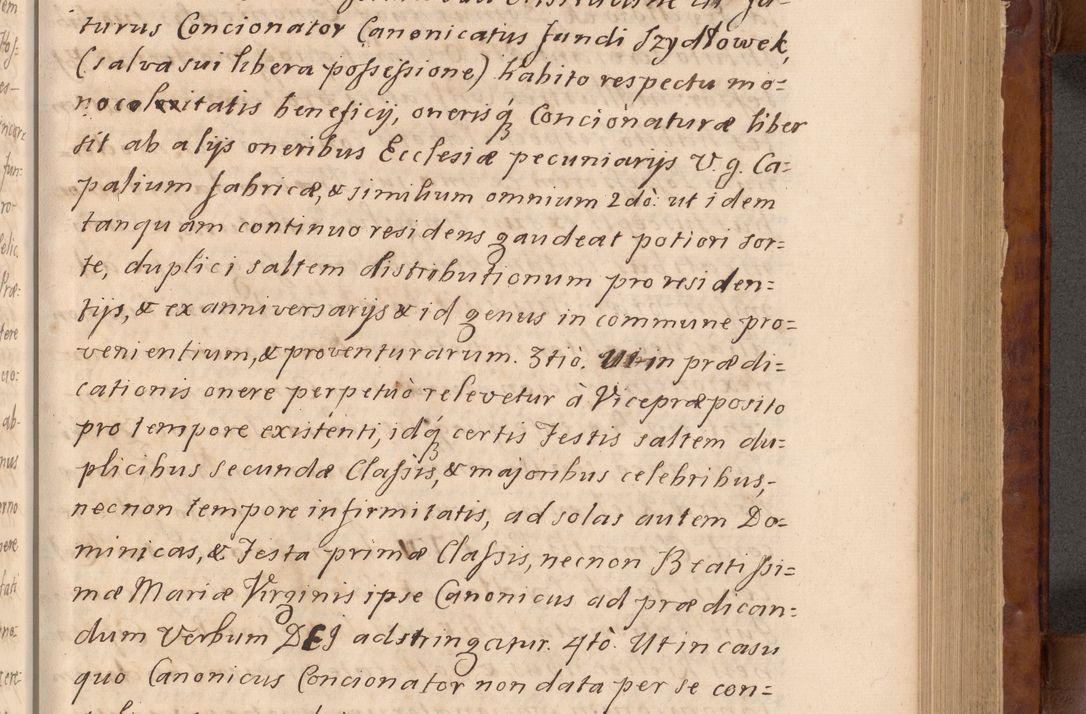 turus Concionator Canonicatus fundi Szydłowek,
(salva sui libera possessione) habito respectu mo=
nocolritatis beneficij, onerisq́ Concionaturæ liber
sit ab alijs oneribus Ecclesiæ pecuniarijs V. g. Ca=
palium fabricæ, & similium omnium 2dò: ut idem
tanquam continuo residens gaudeat potiori sor=
te, duplici saltem distributionum pro residen=
tijs, & ex anniversarijs & id genus in commune pro=
venientium, & proventurarum. 3tiò. Ut in prædi=
cationis onere perpetuò relevetur à Vicepræposito
pro tempore existenti, idq́ certis Festis saltem du=
plicibus secundæ Classis, & majoribus celebribus,
necnon tempore infirmitatis, ad solas autem Do=
minicas, & Festa primæ Classis, necnon Beatissi=
mæ Mariæ Virginis ipse Canonicus ad prædican=
dum Verbum DEI adstringatur. 4tò. Ut in casu
quo Canonicus Concionator non data per se con=